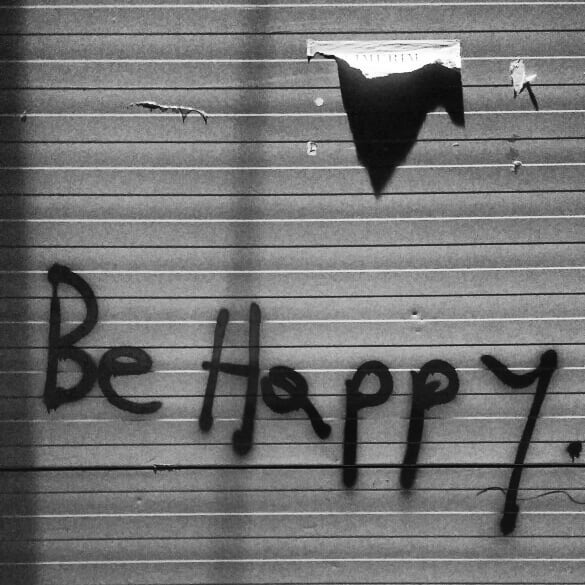 Be Happy.